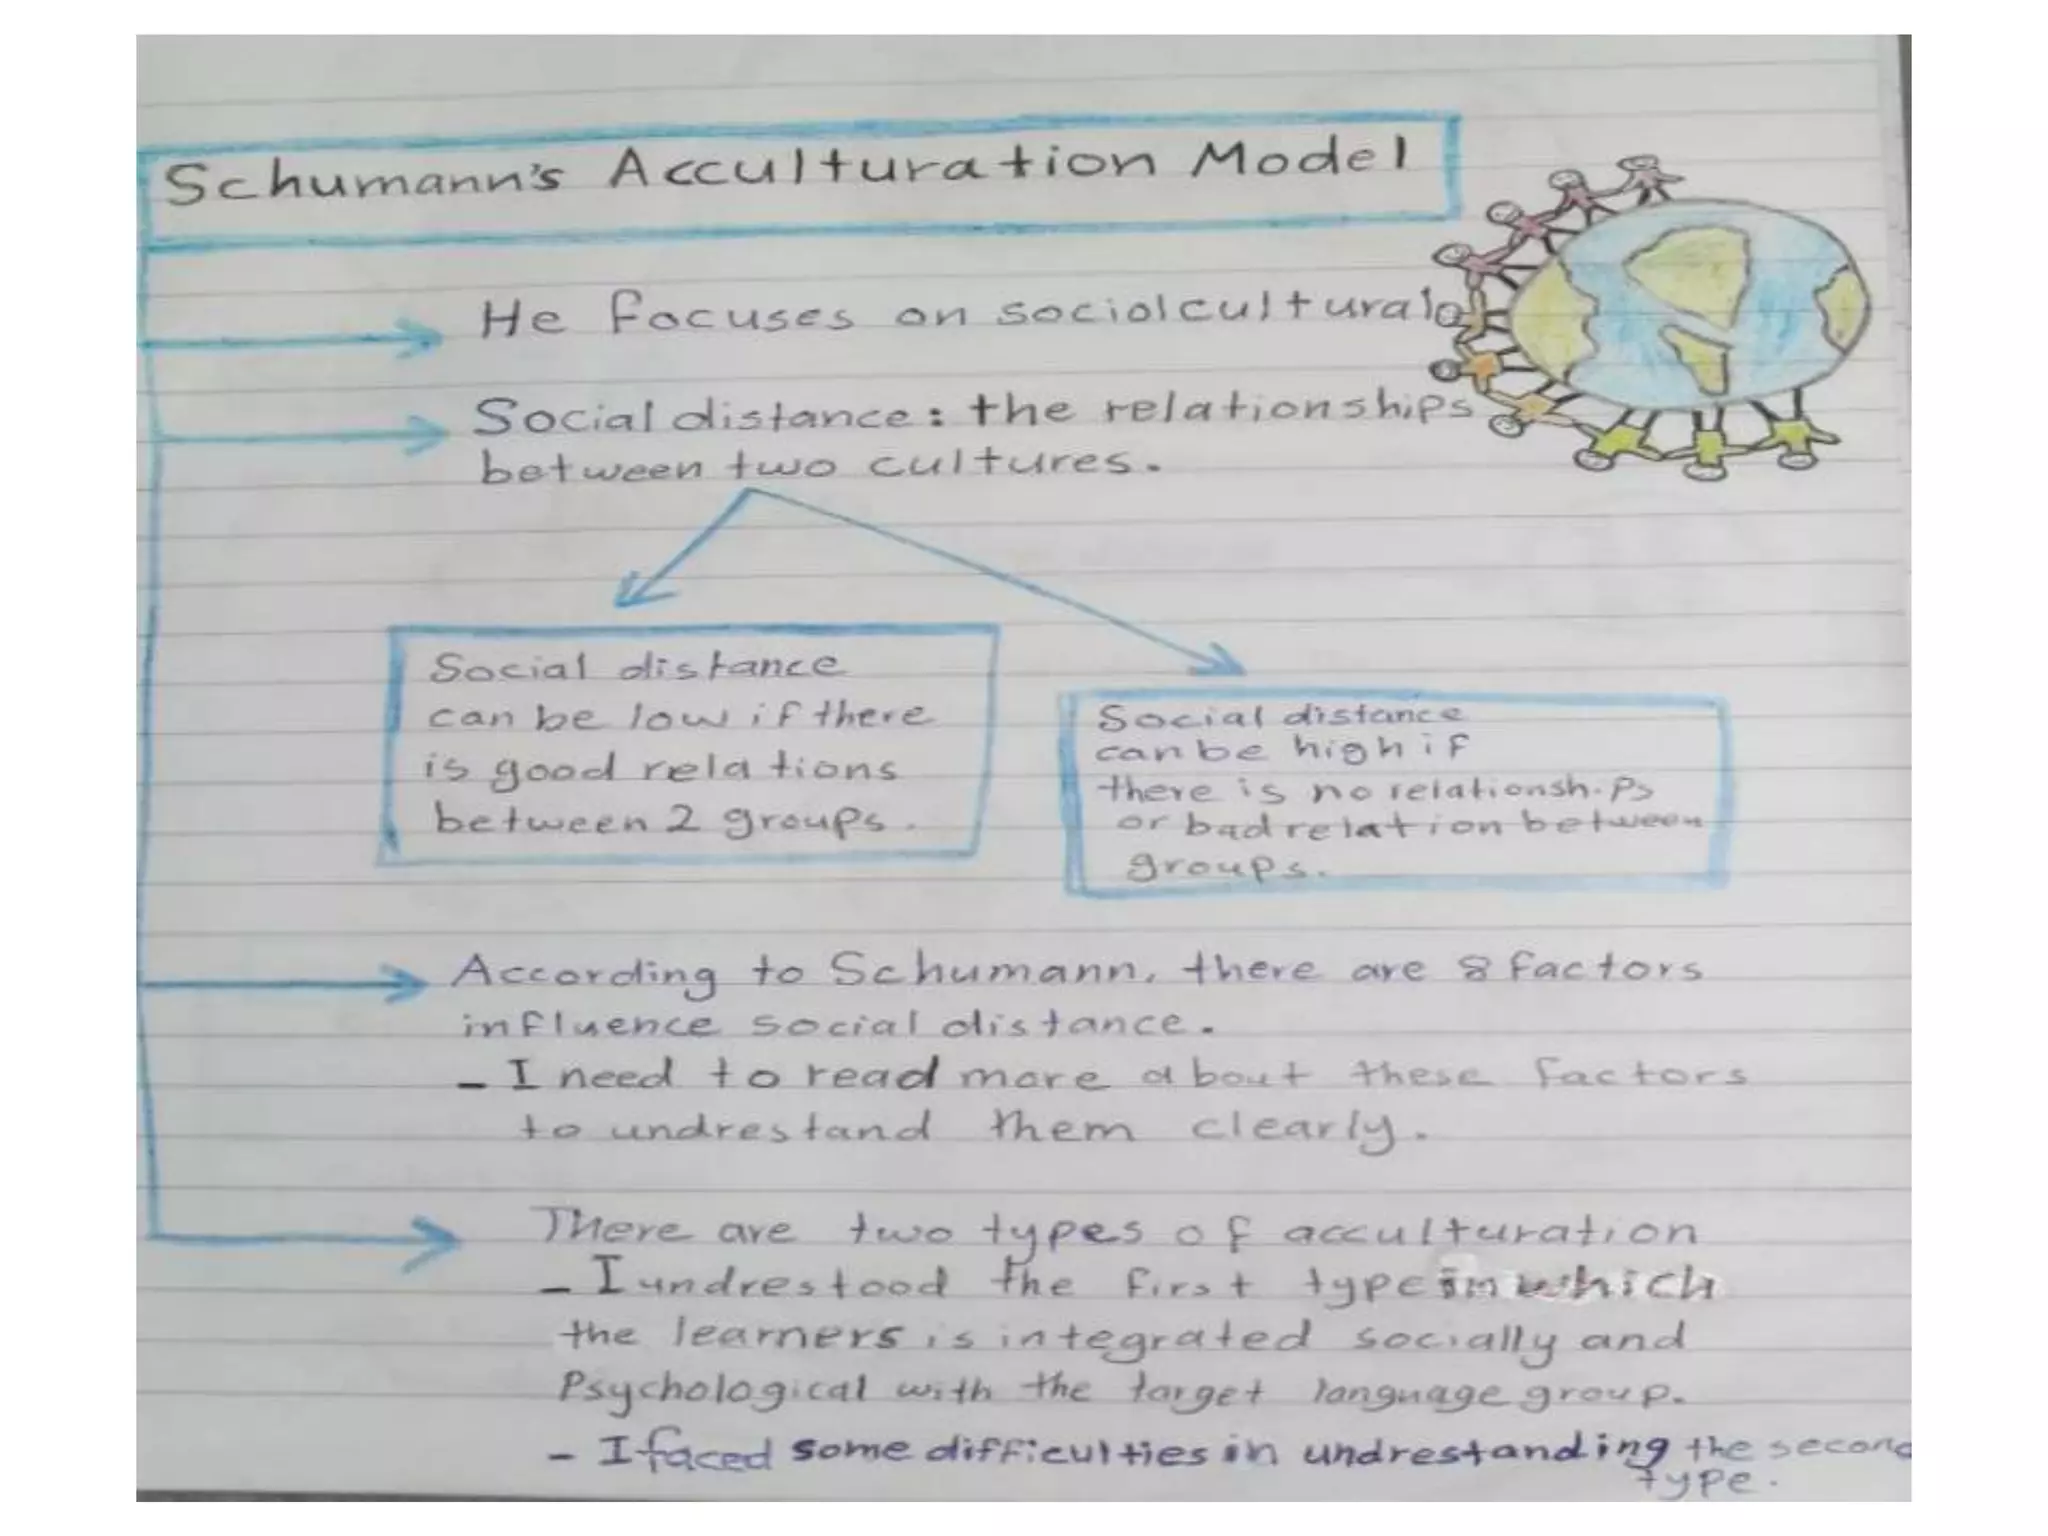 Schumann's Acculturation Model
He focuses on sociolcultural
Social distance: the relationships
between two cultures.
Social distance
can be low if there
is good relations
between 2 groups.
Social distance
can be high if
there is no relationships
or bad relation between
groups.
According to Schumann, there are 8 factors
influence social distance.
- I need to read more about these factors
to undrestand them clearly.
There are two types of acculturation
- I undrestood the first type in which
the learners is integrated socially and
Psychological with the target language group.
- I faced some difficulties in undrestanding the second
type.